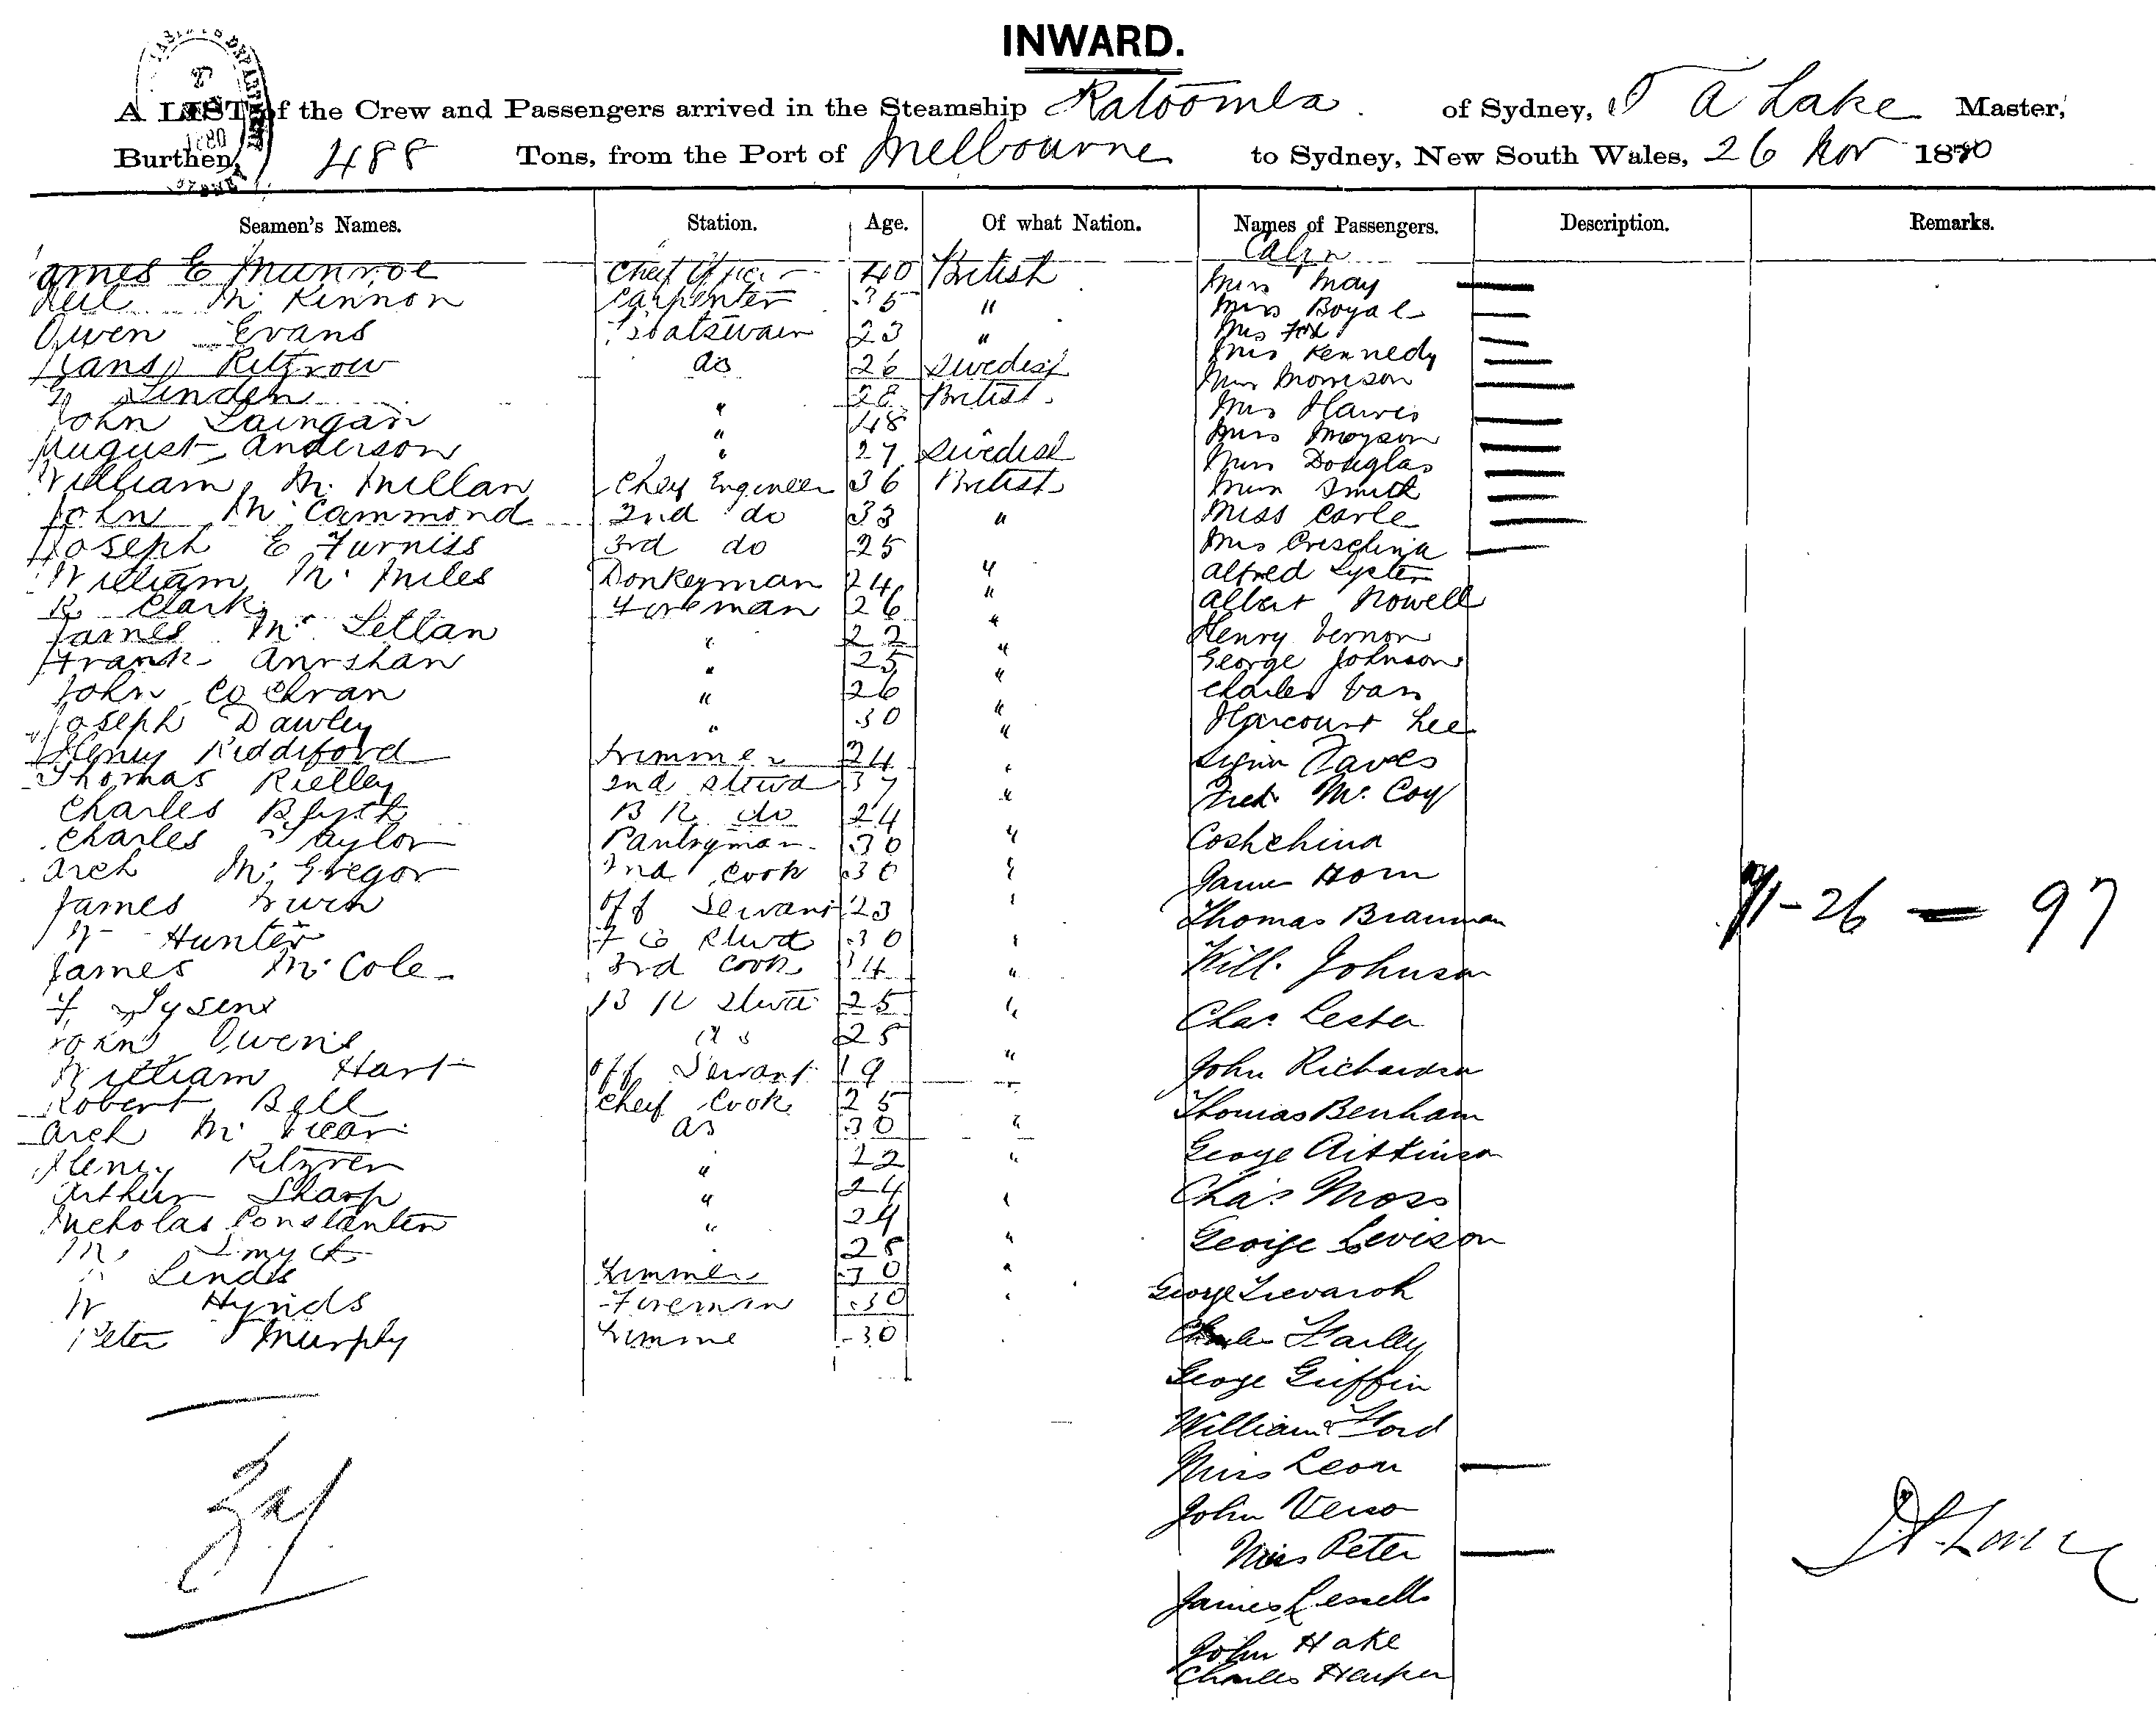 INWARD.
A LIST of the Crew and Passengers arrived in the Steamship Katoomba of Sydney, A Lake Master,
Burthen, 488 Tons, from the Port of Melbourne to Sydney, New South Wales, 26 Nov 1880
Seamen's Names. Station. Age. Of what Nation. Names of Passengers. Description. Remarks.
Cabin
James E Munroe Chief Officer 40 British Miss May
Neil Mc Kinnon Carpenter 35 " Mrs
Owen Evans Boatswain 23 " Mrs Fox
Hans Ritzrow AB 26 Swedish Mrs Kennedy
Linden 28 British Mrs Morrison
John Laingan " 48 Mrs
August Anderson " 27 Swedish Mrs Moyson
William Mc Millan Chief Engineer 36 British Mrs Douglas
John Mc Cammond 2nd do 33 " Smith
Joseph E Furniss 3rd do 25 Miss Earle
William Mc Miles Donkeyman 24 " Mrs
R Clark Fireman 26 " Alfred Lyster
James Mc Lellan " 22 " Albert Nowell
Frank " 25 " Henry Vernon
John Cochran " 26 " George Johnson
Joseph Dawley " 30 " Charles
Henry Riddiford Trimmer 24 " Harcourt Lee
Thomas Rielley 2nd Stewd 37 "
Charles Blyth B R do 24 " Fred Mc Coy
Charles Taylor Pantryman 30 " Coshchina
Arch Mc Gregor 2nd Cook 30 " James Horn
James Off Servant 23 " Thomas Brauman
W Hunter F C Stwd 30 " Will. Johnson
James Mc Cole 3rd Cook 34 "
F Tysen B R Stwd 25 " Chas Lester
John Owens 25
William Hart Off Servant 19 " John Richardson
Robert Bell Chief Cook 25 Thomas Benham
Arch Mc Vicar AB 30 "
Henry " 22 " George Aitkinson
Arthur Sharp " 24 " Chas Moss
Nicholas Constanten " 24
28 " George Levison
Lindis Trimmer 30 "
W Hynds Fireman 30 " George
Peter Murphy Trimmer 30 Charles
George Griffin
William Ford
Miss Leon
John Verso
Miss Peter
James Lessells
John Hake
Charles Harper
71-26 — 97